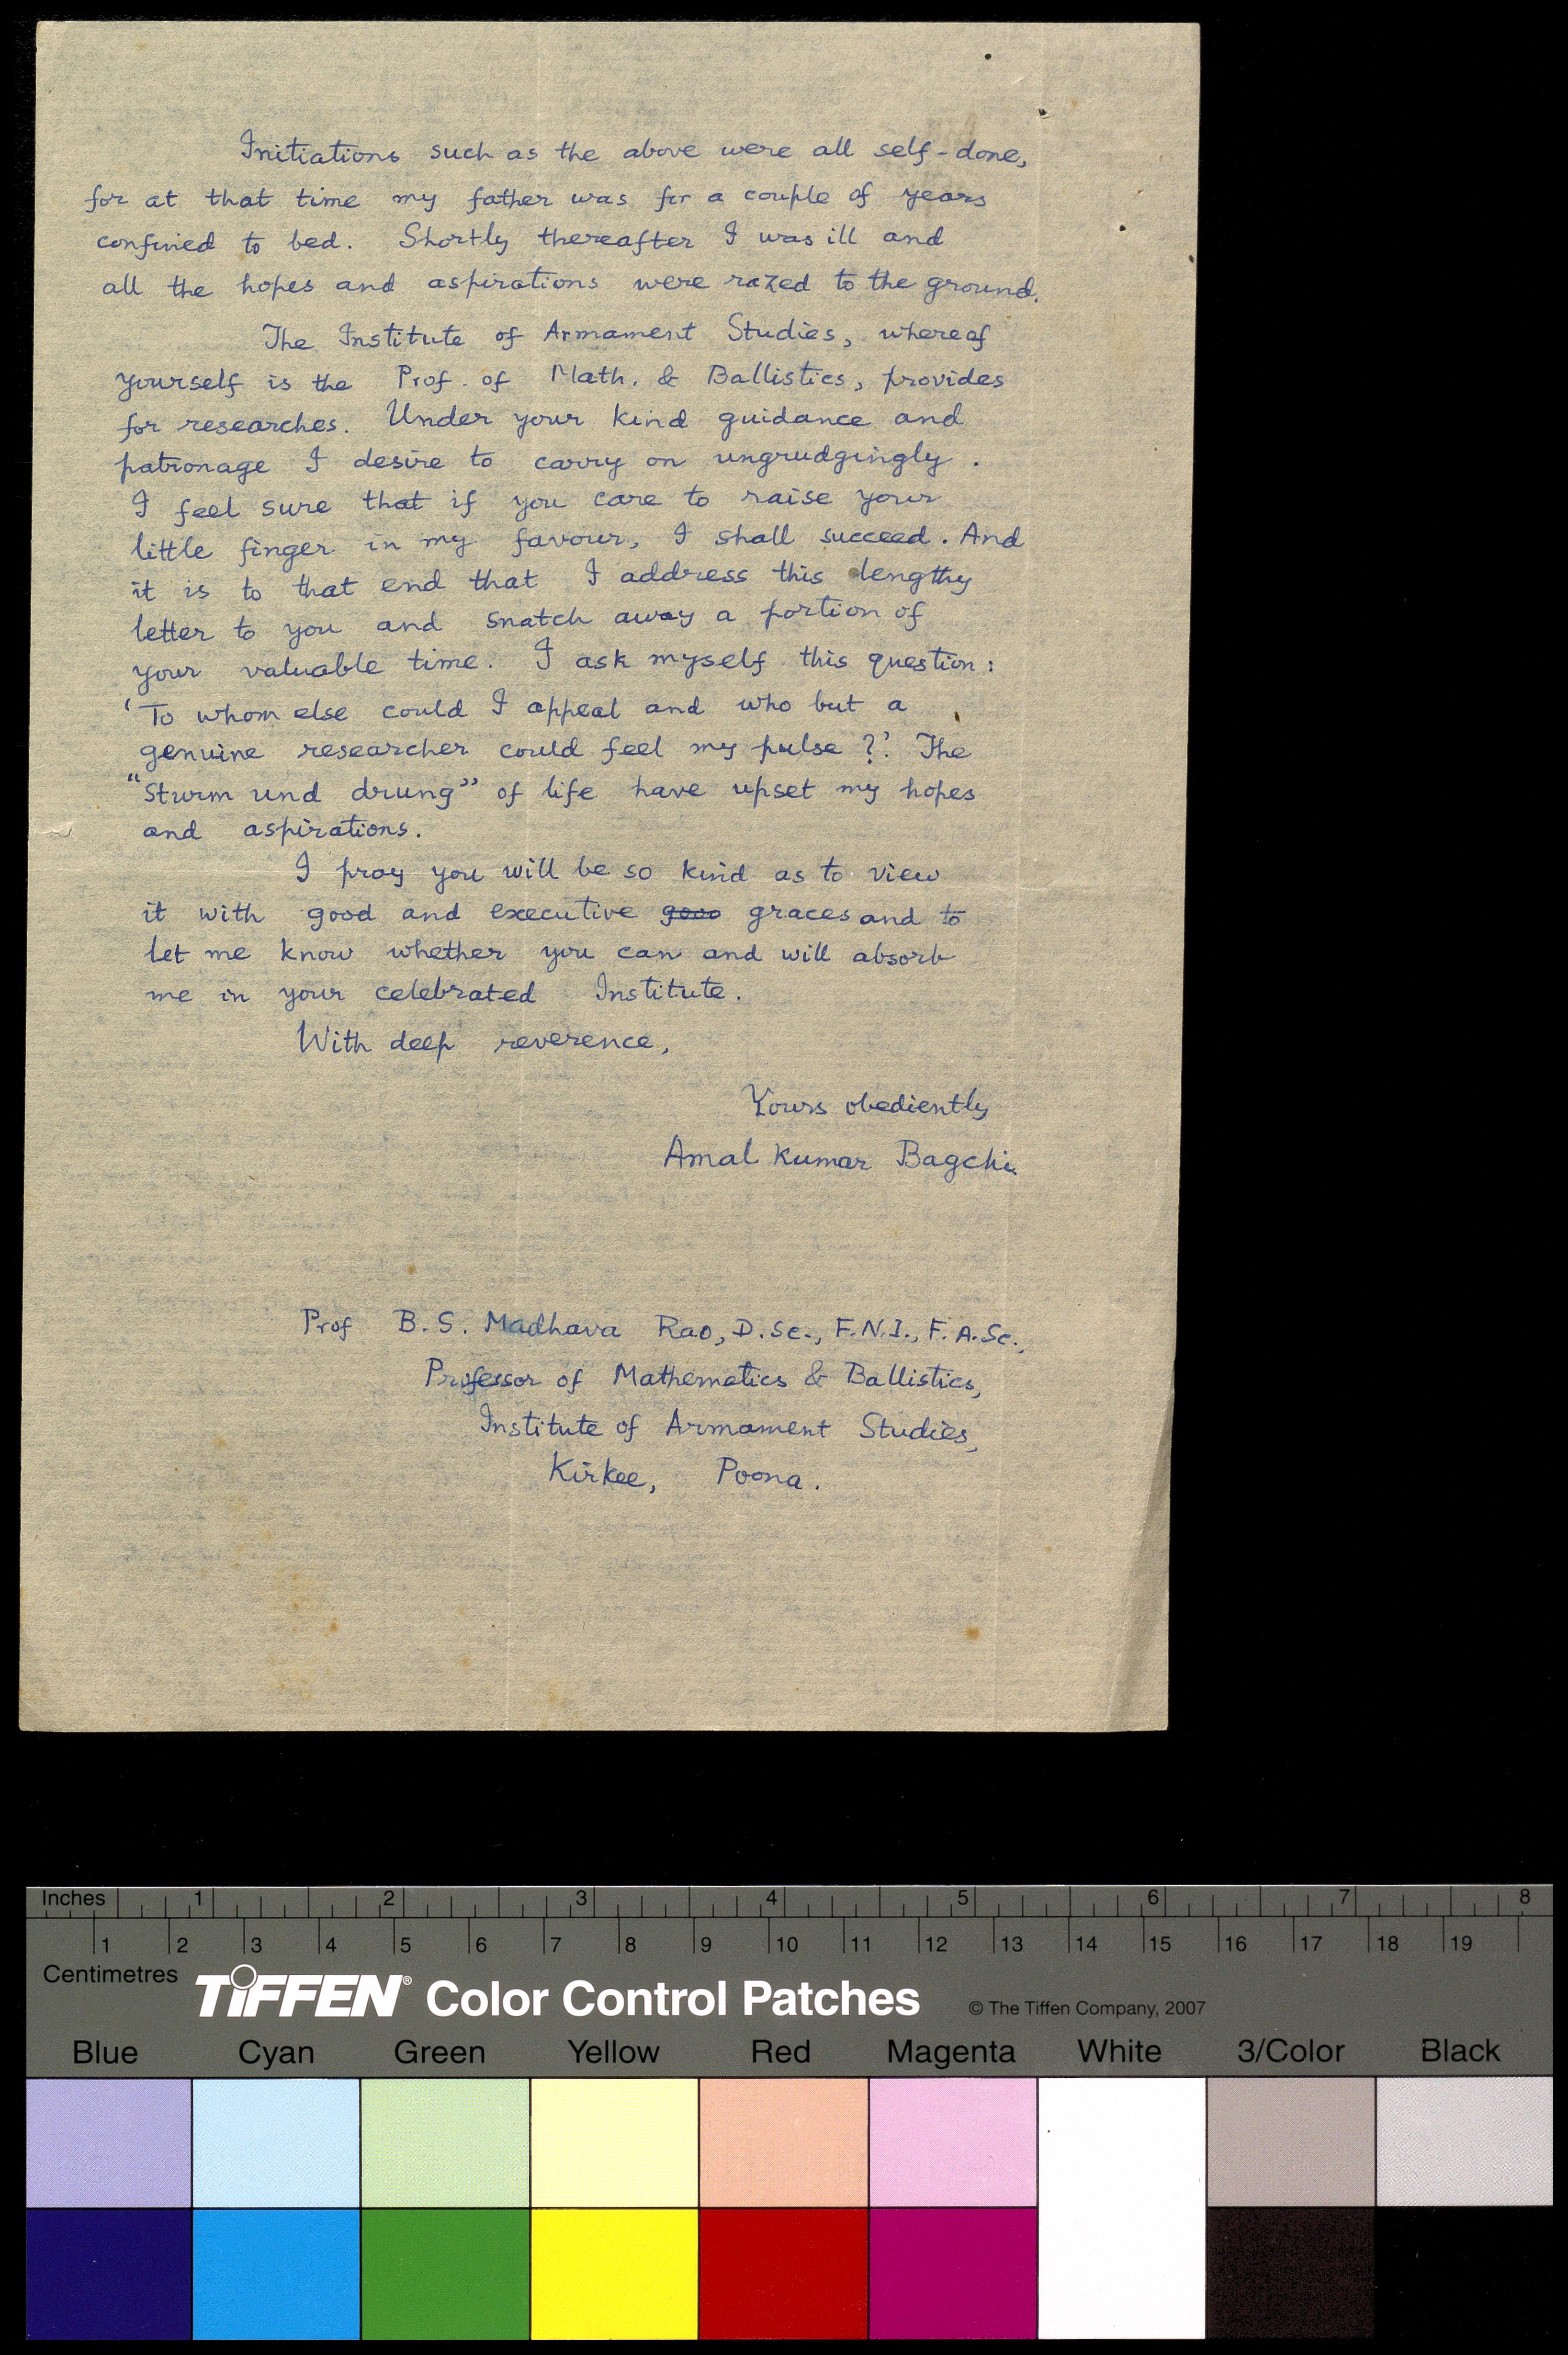 Initiations such as the above were all self-done,
for at that time my father was for a couple of years
confined to bed. Shortly thereafter I was ill and
all the hopes and aspirations were razed to the ground.
The Institute of Armament Studies, whereof
yourself is the Prof. of Math. & Ballistics, provides
for researches. Under your kind guidance and
patronage I desire to carry on ungrudgingly.
I feel sure that if you care to raise your
little finger in my favour, I shall succeed. And
it is to that end that I address this lengthy
letter to you and snatch away a portion of
your valuable time. I ask myself this question:
'To whom else could I appeal and who but a
genuine researcher could feel my pulse?' The
"Sturm und drung" of life have upset my hopes
and aspirations.
I pray you will be so kind as to view
it with good and executive graces and to
let me know whether you can and will absorb
me in your celebrated Institute.
With deep reverence,
Yours obediently
Amal Kumar Bagchi
Prof B.S. Madhava Rao, D.Sc., F.N.I., F.A.Sc.,
Professor of Mathematics & Ballistics,
Institute of Armament Studies,
Kirkee, Poona.
Inches 1 2 3 4 5 6 7 8
1 2 3 4 5 6 7 8 9 10 11 12 13 14 15 16 17 18 19
Centimetres
TIFFEN® Color Control Patches © The Tiffen Company, 2007
Blue Cyan Green Yellow Red Magenta White 3/Color Black